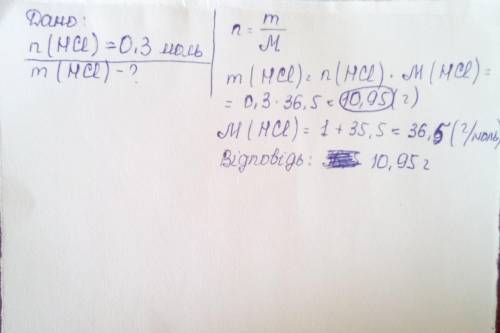 Дано:
n(HCl)=0,3 моль
m(HCl)-?
n = m/M
m(HCl) = n(HCl) · M(HCl) =
= 0,3 · 36,5 = 10,95 (г)
M(HCl) = 1 + 35,5 = 36,5 (г/моль)
Відповідь: 10,95 г